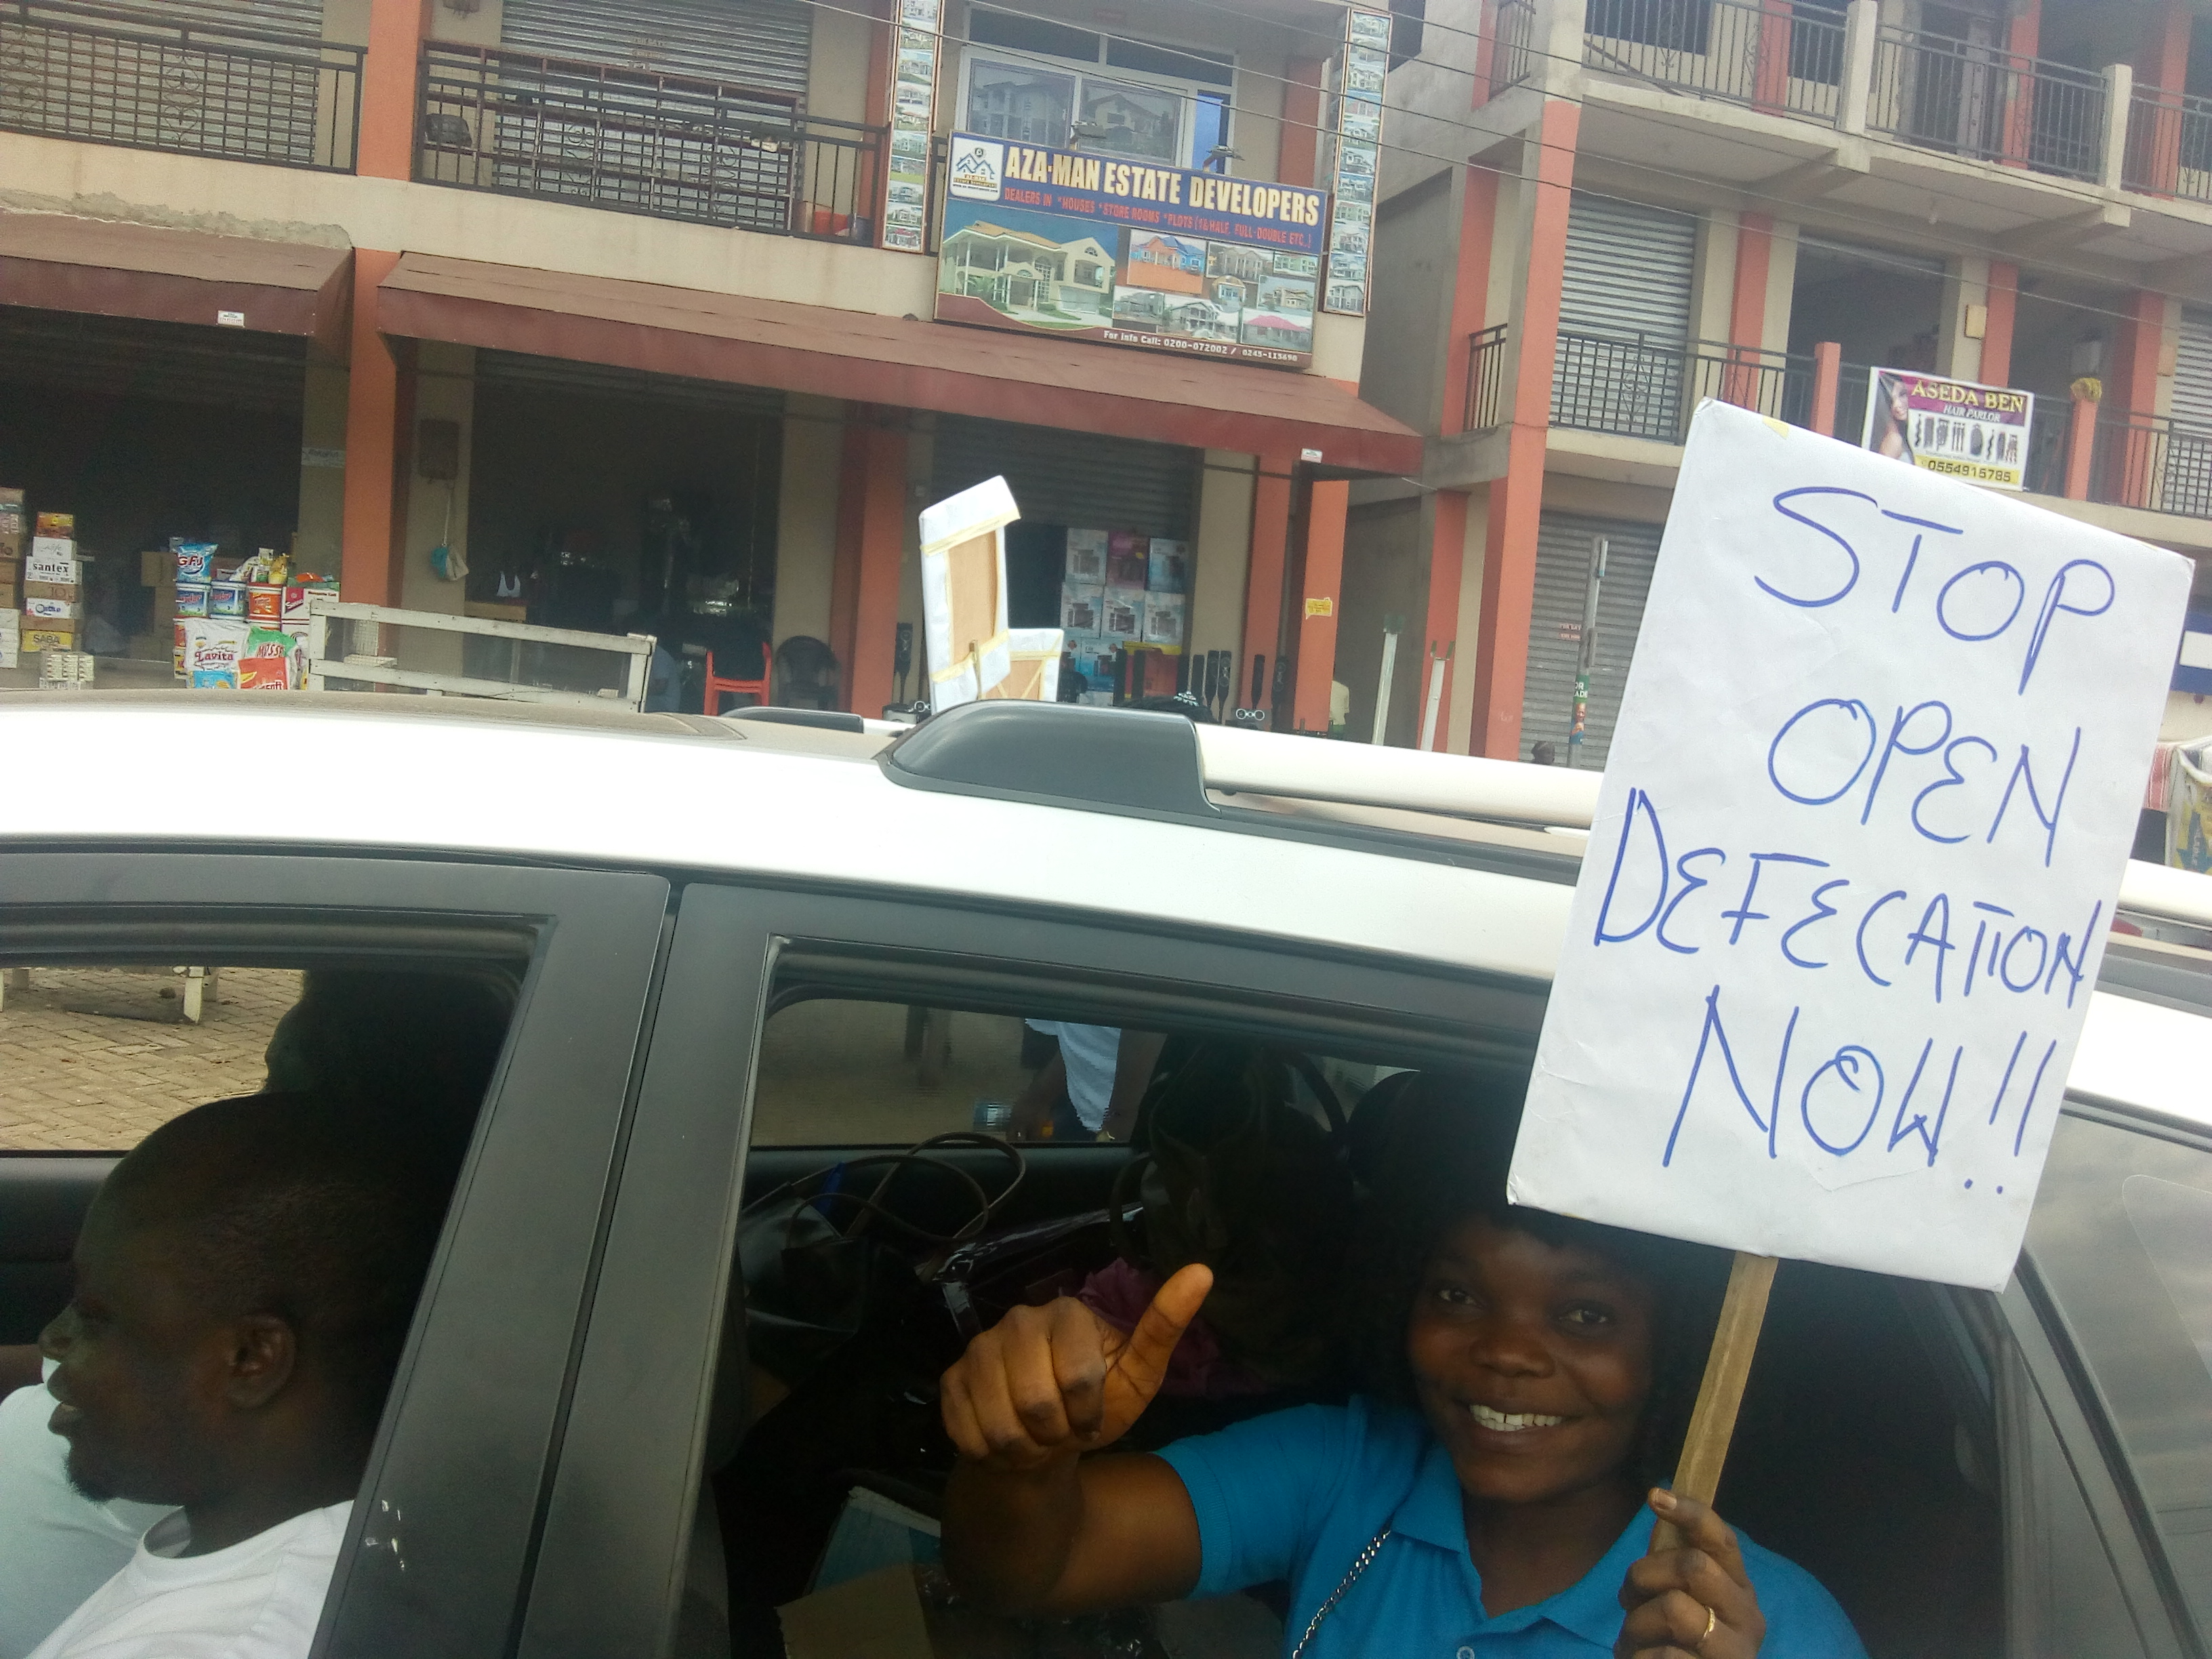 AZA-MAN ESTATE DEVELOPERS
DEALERS IN *HOUSES *STORE ROOMS *PLOTS (1&HALF, FULL-DOUBLE ETC..)
For Info Call: 0200-072002 / 0245-115690
ASEDA BEN
HAIR PARLOR
0554915785
STOP
OPEN
DEFECATION
NOW!!
santex
SABA
Lavita